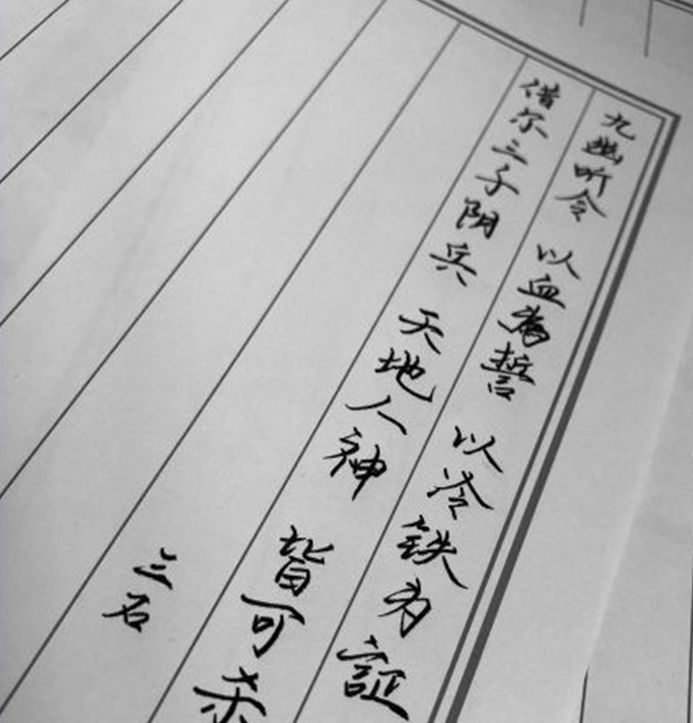 九幽听令 以血為誓 以冷铁为証
借尔三千阴兵 天地人神 皆可杀
三石